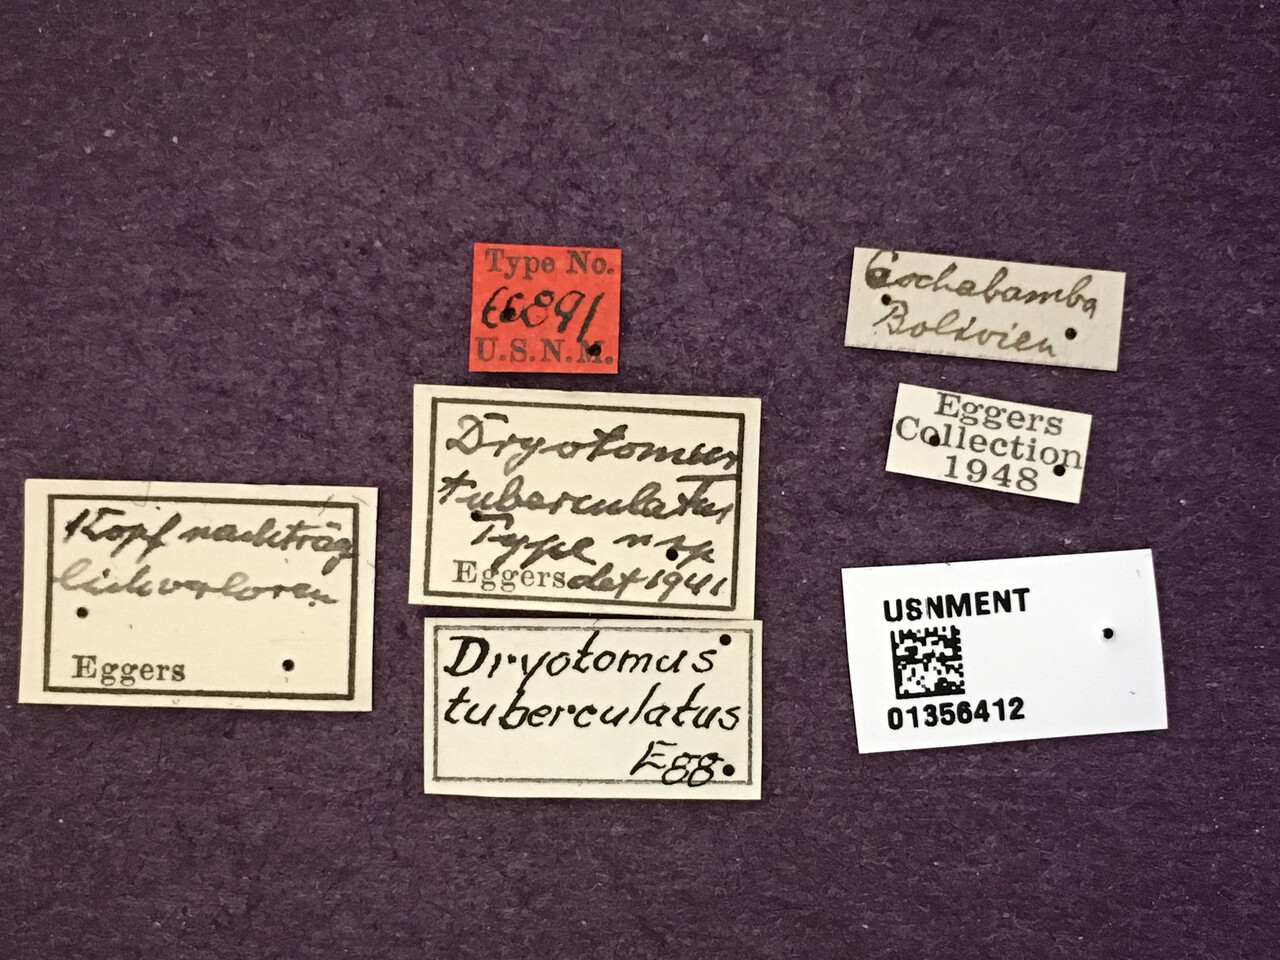 Type No.
66891
U.S.N.M.
Cochabamba
Bolivien
Eggers
Collection
1948
Dryotomus
tuberculatus
Type n sp
Eggers det 1941
Kopf nachträg
lich verloren
Eggers
Dryotomus
tuberculatus
Egg.
USNMENT
01356412